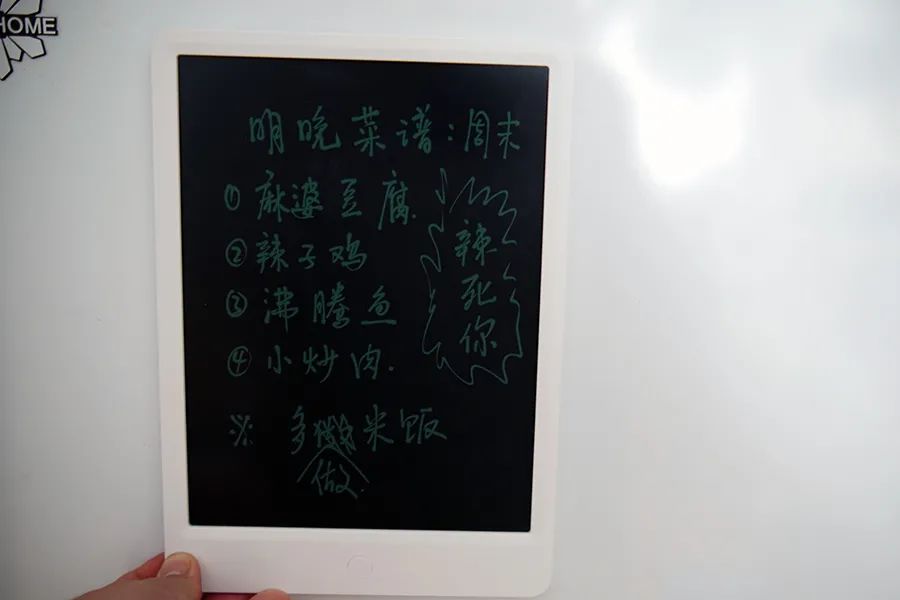 HOME
明晚菜谱：周末
① 麻婆豆腐.
② 辣子鸡
③ 沸腾鱼
④ 小炒肉.
辣
死
你
※ 多做米饭